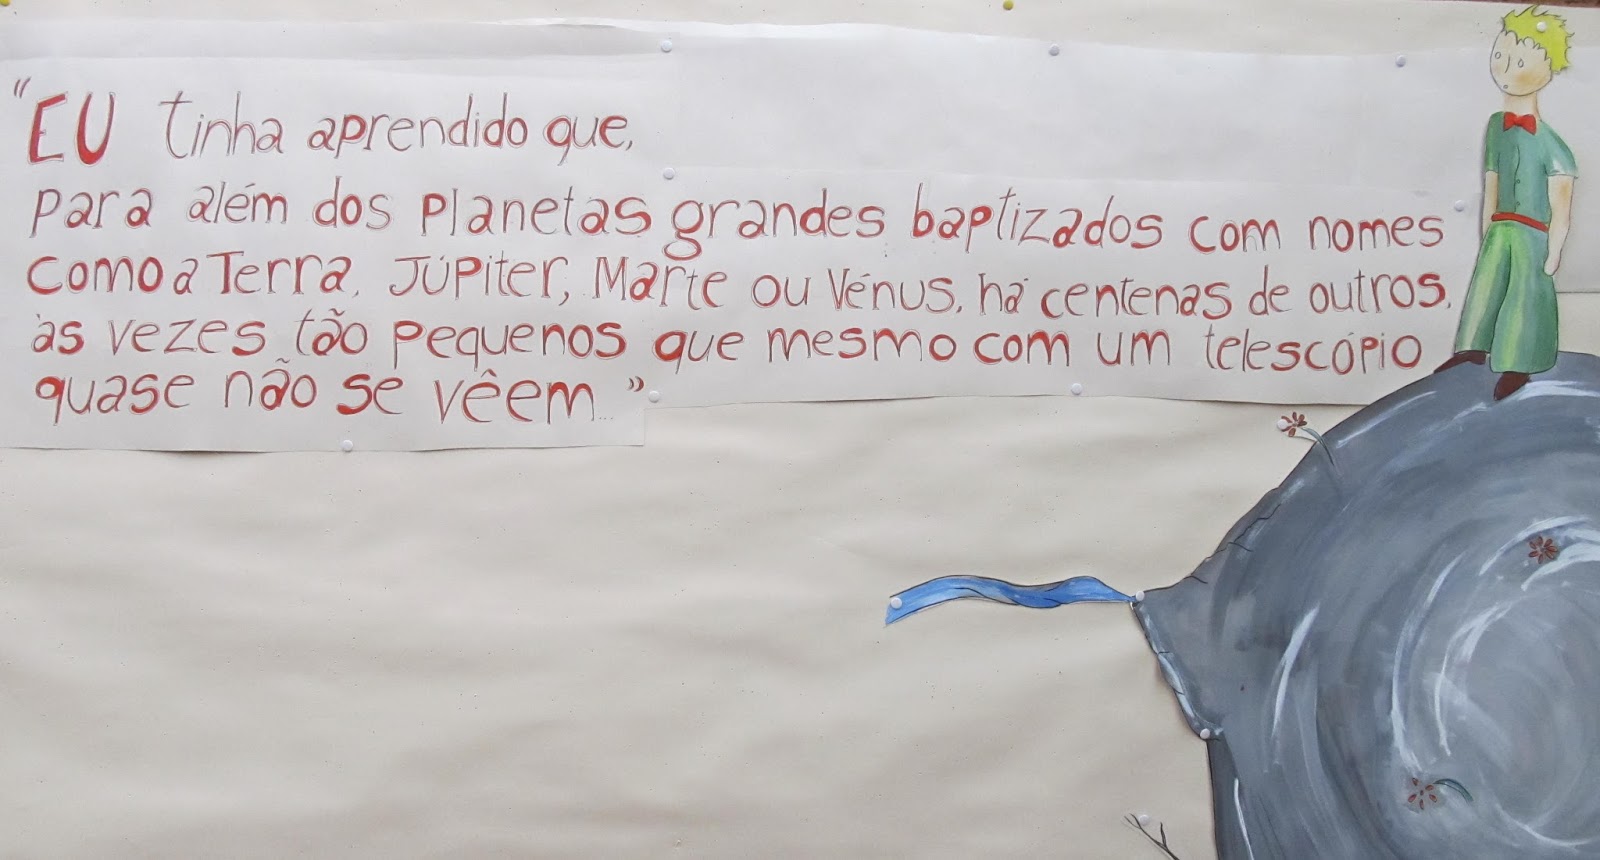 "EU tinha aprendido que,
para além dos planetas grandes baptizados com nomes
como a Terra, Júpiter, Marte ou Vénus, há centenas de outros,
às vezes tão pequenos que mesmo com um telescópio
quase não se vêem..."